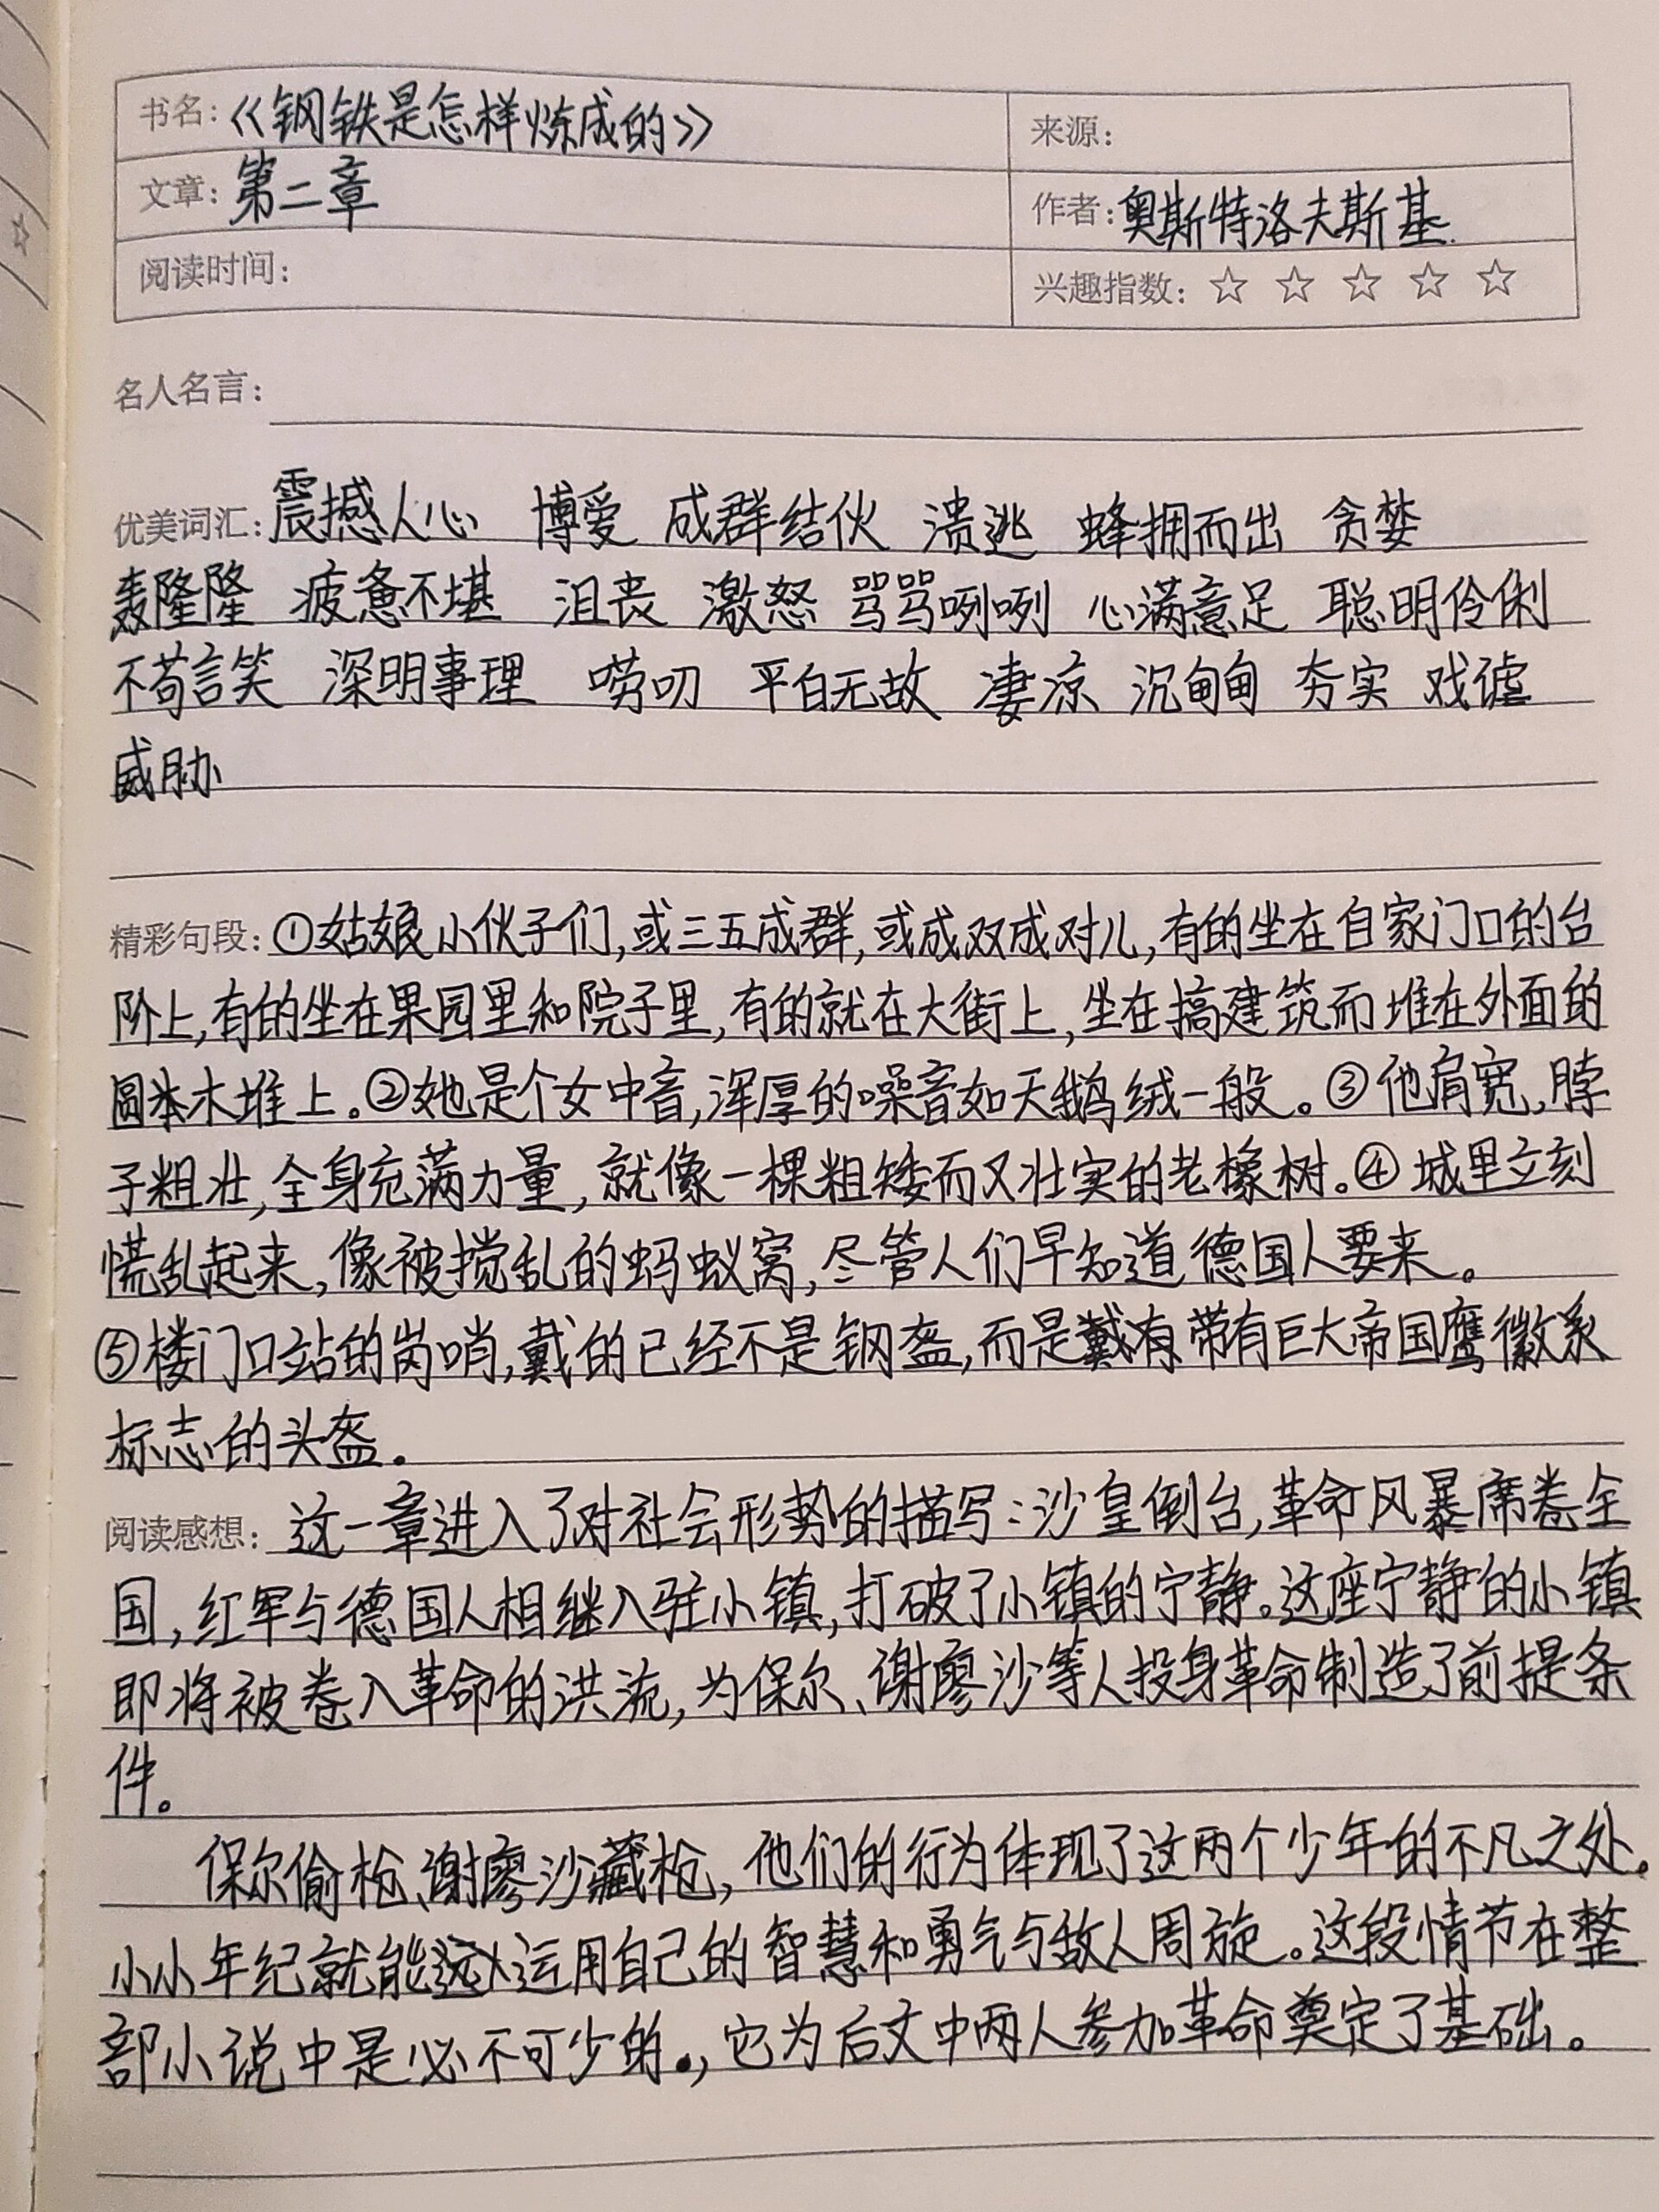 书名：《钢铁是怎样炼成的》
来源：
文章：第二章
作者：奥斯特洛夫斯基
阅读时间：
兴趣指数：☆ ☆ ☆ ☆ ☆
名人名言：
优美词汇：震撼人心 博爱 成群结伙 溃逃 蜂拥而出 贪婪
轰隆隆 疲惫不堪 沮丧 激怒 骂骂咧咧 心满意足 聪明伶俐
不苟言笑 深明事理 唠叨 平白无故 凄凉 沉甸甸 夯实 戏谑
威胁
精彩句段：①姑娘小伙子们，或三五成群，或成双成对儿，有的坐在自家门口的台
阶上，有的坐在果园里和院子里，有的就在大街上，坐在搞建筑而堆在外面的
圆木堆上。②她是个女中音，浑厚的嗓音如天鹅绒一般。③他肩宽，脖
子粗壮，全身充满力量，就像一棵粗矮而又壮实的老橡树。④城里立刻
慌乱起来，像被搅乱的蚂蚁窝，尽管人们早知道德国人要来。
⑤楼门口站的岗哨，戴的已经不是钢盔，而是戴有带有巨大帝国鹰徽系
标志的头盔。
阅读感想：这一章进入了对社会形势的描写：沙皇倒台，革命风暴席卷全
国，红军与德国人相继入驻小镇，打破了小镇的宁静。这座宁静的小镇
即将被卷入革命的洪流，为保尔、谢廖沙等人投身革命制造了前提条
件。
保尔偷枪、谢廖沙藏枪，他们的行为体现了这两个少年的不凡之处。
小小年纪就能运用自己的智慧和勇气与敌人周旋。这段情节在整
部小说中是必不可少的，它为后文中两人参加革命奠定了基础。